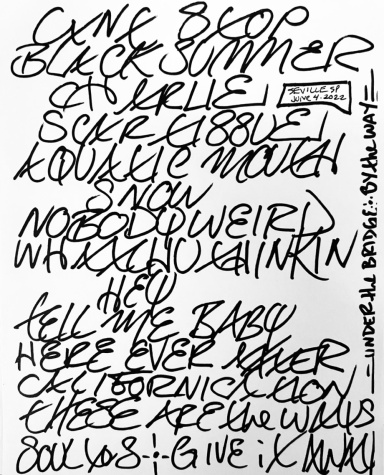 CANT STOP
BLACK SUMMER
CHARLIE
SEVILLE SP
JUNE 4. 2022
SCAR TISSUE
AQUATIC MOUTH
SNOW
NOBODY WEIRD
WHATCHU THINKIN
HEY
TELL ME BABY
HERE EVER AFTER
CALIFORNICATION
THESE ARE the WAYS
SOUL TO S -:- GIVE iT AWAY
— UNDER the BRIDGE ∴ BY the WAY —